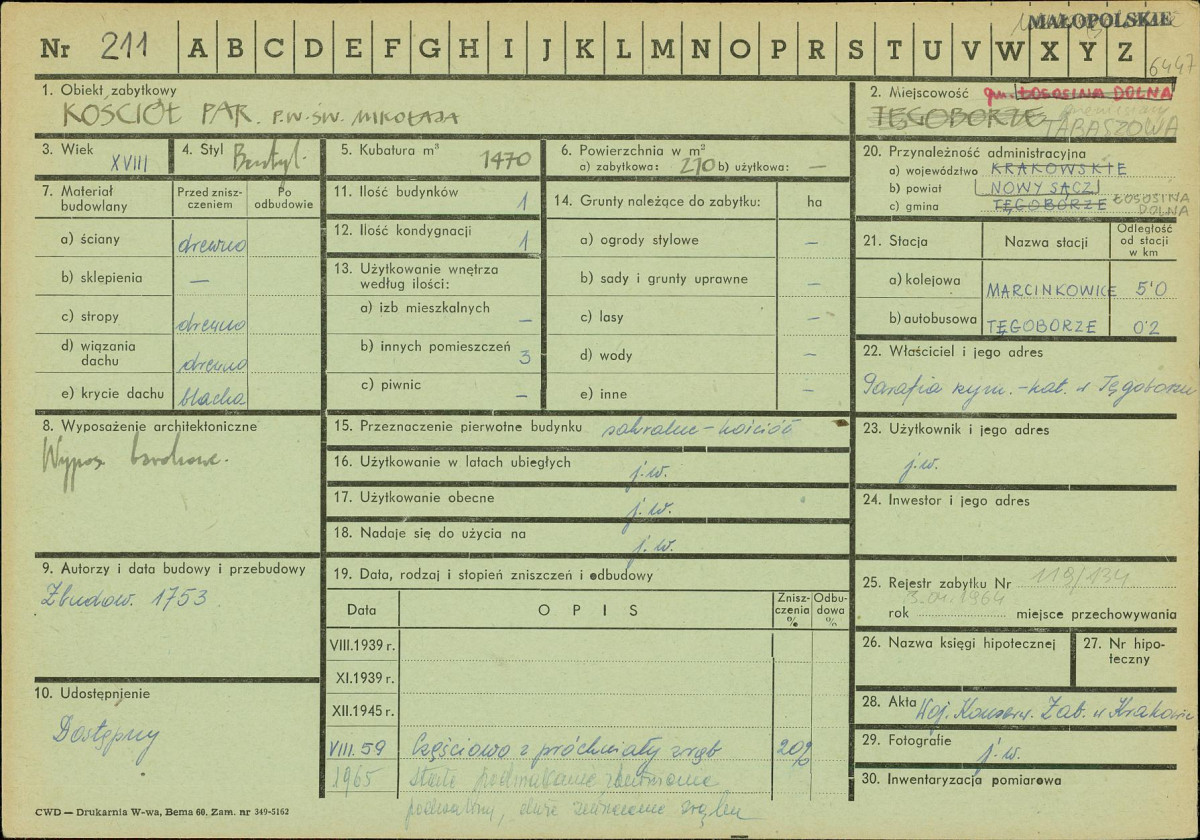 MAŁOPOLSKIE
Nr 211 A B C D E F G H I J K L M N O P R S T U V W X Y Z
6447
1. Obiekt zabytkowy
KOŚCIÓŁ PAR. P.W. ŚW. MIKOŁAJA
2. Miejscowość gm. ŁOSOSINA DOLNA
TĘGOBORZE
TABASZOWA
3. Wiek XVIII
4. Styl
5. Kubatura m³ 1470
6. Powierzchnia w m²
a) zabytkowa: 210 b) użytkowa: —
7. Materiał budowlany
Przed zniszczeniem
Po odbudowie
a) ściany drewno
b) sklepienia —
c) stropy drewno
d) wiązania dachu drewno
e) krycie dachu blacha
11. Ilość budynków 1
12. Ilość kondygnacji 1
13. Użytkowanie wnętrza według ilości:
a) izb mieszkalnych —
b) innych pomieszczeń 3
c) piwnic —
14. Grunty należące do zabytku: ha
a) ogrody stylowe —
b) sady i grunty uprawne —
c) lasy —
d) wody —
e) inne —
20. Przynależność administracyjna
a) województwo KRAKOWSKIE
b) powiat NOWY SĄCZ
c) gmina TĘGOBORZE ŁOSOSINA DOLNA
21. Stacja
Nazwa stacji
Odległość od stacji w km
a) kolejowa MARCINKOWICE 5'0
b) autobusowa TĘGOBORZE 0'2
22. Właściciel i jego adres
Parafia rzym.-kat. w Tęgoborzu
8. Wyposażenie architektoniczne
Wypos. barokowe.
15. Przeznaczenie pierwotne budynku sakralne – kościół
16. Użytkowanie w latach ubiegłych j.w.
17. Użytkowanie obecne j.w.
18. Nadaje się do użycia na j.w.
23. Użytkownik i jego adres
j.w.
24. Inwestor i jego adres
9. Autorzy i data budowy i przebudowy
Zbudow. 1753
19. Data, rodzaj i stopień zniszczeń i odbudowy
Data
OPIS
Zniszczenia %
Odbudowa %
VIII.1939 r.
XI.1939 r.
XII.1945 r.
VIII.59 Częściowo zpróchniały zrąb 20%
1965 Stałe podmakanie
25. Rejestr zabytku Nr 119/134
rok 3.04.1964 miejsce przechowywania
26. Nazwa księgi hipotecznej
27. Nr hipoteczny
10. Udostępnienie
Dostępny
28. Akta Woj. Konserw. Zab. w Krakowie
29. Fotografie j.w.
30. Inwentaryzacja pomiarowa
CWD — Drukarnia W-wa, Bema 60. Zam. nr 349-5162